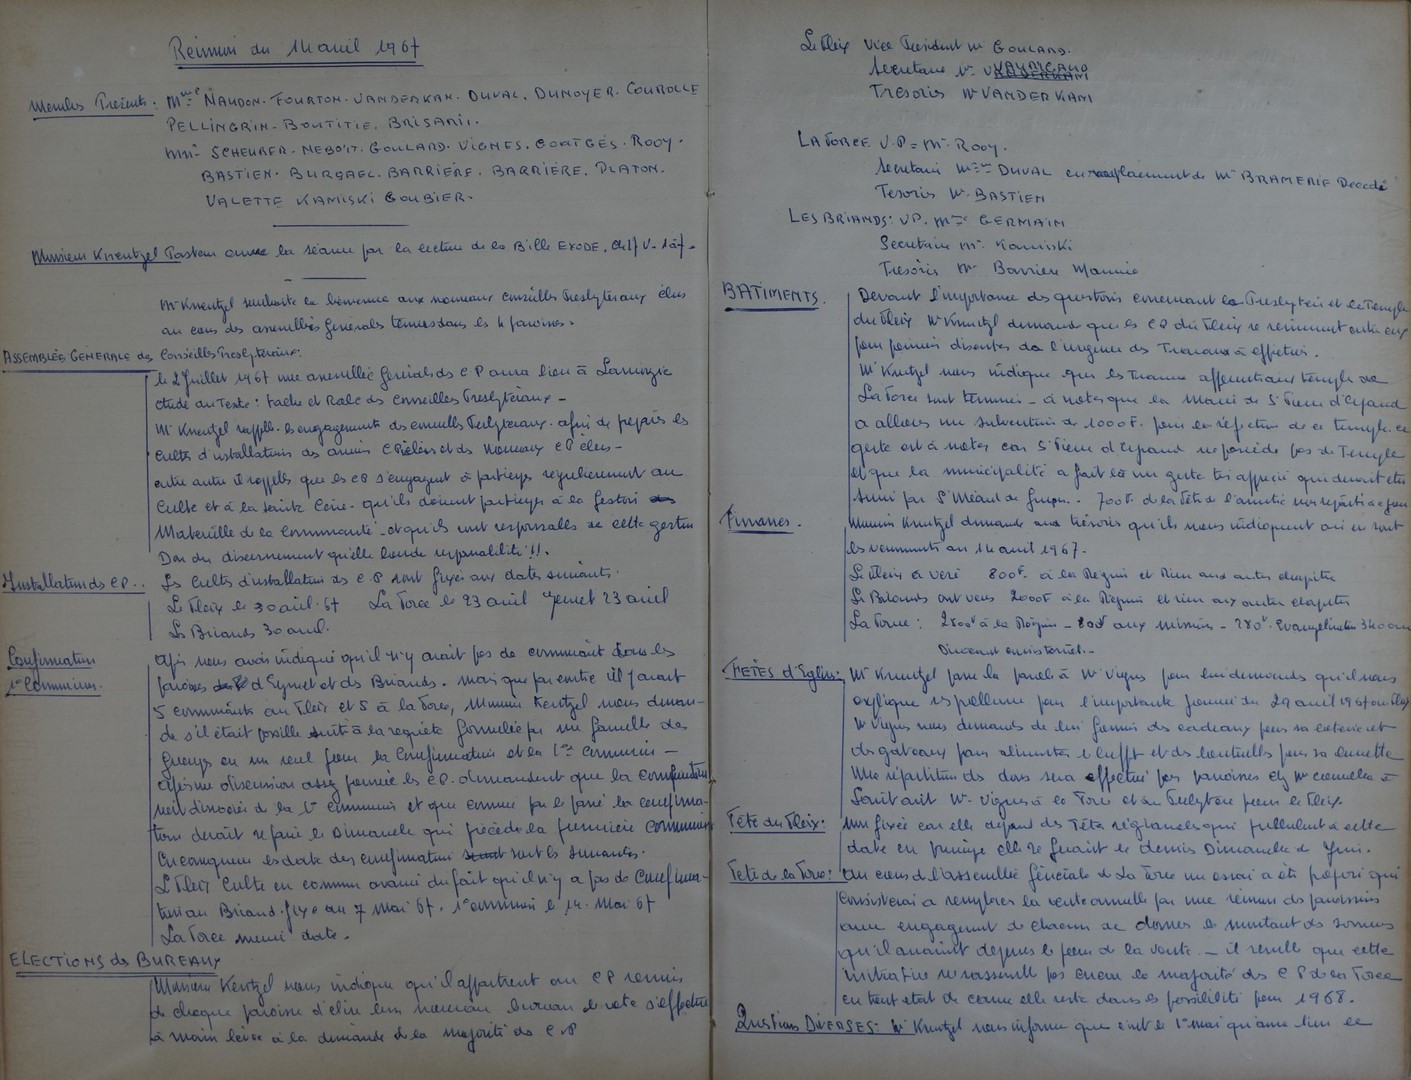 Réunion du 14 avril 1967
Membres Présents : Mmes NAUDON. FOURTON. VANDERKAM. DUVAL. DUMOYER. COUROLLE
PELLINGRIN. BOUTITIE. BRISARII.
MM. SCHEURER. NEBOIT. GOULARD. VIGNES. COATGÉS. ROOY.
BASTIEN. BURGAEL. BARRIÈRE. BARRIÈRE. PLATON.
VALETTE KAMISKI GOUBIER.
Monsieur Kreutzel Pasteur ouvre la séance par la lecture de la Bible EXODE.
Mr Kreutzel souhaite la bienvenue aux nouveaux conseillers Presbyteraux élus
au cours des assemblées générales tenues dans les 4 paroisses.
ASSEMBLÉE GENERALE des Conseillers Presbyteraux:
le 2 Juillet 1967 une assemblée Générale des C.P aura lieu à Lamonzie
étude du Texte : tache et Role des Conseillers Presbyteraux -
Mr Kreutzel rappelle les engagements des conseillers Presbyteraux afin de préparer les
cultes d'installation des anciens C P réélus et des nouveaux C P élus -
entre autre il rappelle que les CP s'engagent à participer régulièrement au
Culte et à la Sainte Cène - qu'ils doivent participer à la Gestion
Materielle de la Communauté - et qu'ils sont responsables de cette gestion
Don du discernement qu'elle lourde responsabilité !!.
Installation des C P.. Les Cultes d'installation des C.P sont fixés aux dates suivantes.
Le Fleix le 30 avril 67 La Force le 23 avril Eymet 23 avril
Les Briands 30 avril.
Confirmation
1e Communion.
Après nous avoir indiqué qu'il n'y avait pas de communiants dans les
paroisses d'Eymet et des Briands. mais que par contre il y avait
5 communiants au Fleix et 5 à la Force, Monsieur Kentzel nous deman-
de s'il était possible suite à la requête formulée par une famille de
grouper en un seul jour la Confirmation et la 1ère Communion -
après une discussion assez les C P. demandent que la confirmation
soit dissociée de la 1e communion et que comme par le passé la confirma-
tion devrait se faire le Dimanche qui précède la première communion
En conséquence les date des confirmation sont les suivantes.
Le Fleix Culte en commun avancé du fait qu'il n'y a pas de Confirma-
tion au Briands fixé au 7 Mai 67. 1e communion le 14 Mai 67
La Force meme date.
ELECTIONS des BUREAUX
Monsieur Kentzel nous indique qu'il appartient au C P réunis
de chaque paroisse d'élire leur nouveau bureau le vote s'effectue
à main levée à la demande de la majorité des C P
Le Fleix Vice President Mr GOULARD.
Secretaire Mr
Tresorier Mr VANDERKAM
LA FORCE V.P = Mr ROOY.
Secretaire Mme DUVAL en remplacement de Mr BRAMERIE Decedé
Tesorier Mr BASTIEN
LES BRIANDS: VP. Mme GERMAIN
Secretaire Mr. Kamiski
Trésorier Mr Barriere Maurice
BATIMENTS.
Devant l'importance des questions concernant le Presbytère et le Temple
du Fleix Mr Kreutzel demande que les C P du Fleix se réunissent entre eux
pour pouvoir discuter de l'urgence des Travaux à effectuer.
Mr Kreutzel nous indique que les travaux au temple de
La Force sont terminés - à noter que la Mairie de St Pierre d'Eyraud
a allouée une subvention de 1000F. pour la réfection de ce temple. ce
geste est à noter car St Pierre d'Eyraud ne possède pas de Temple
et que la municipalité a fait là un geste très apprecié qui devrait être
suivi par St Méard de Gurçon. 700F. de la Fête de l'amitié
Finances.
Monsieur Kreutzel demande aux trésoriers qu'ils nous indiquent où en sont
les versements au 14 avril 1967.
Le Fleix a versé 800F. à la Région et Rien aux autres chapitre
Les Briands ont versé 2000F à la Région et rien aux autres chapitres
La Force : 2800F à la Région - 800F aux missions - 280F. Evangelisation
FETES d'Eglise:
Mr Kreutzel passe la parole à Mr Vignes pour lui demander qu'il nous
explique pour l'importante journée du 29 avril 1967 au Fleix
Mr Vignes nous demande de lui fournir des cadeaux pour sa loterie et
des gateaux pour alimenter le buffet et des bouteilles pour sa buvette
Une répartition des dons sera effectué par paroisses
soit Mr Vignes à la Force et au Presbytère pour le Fleix.
Fête du Fleix.
non fixée car elle dépend des fêtes régionales qui pullulent à cette
date en principe elle se ferait le dernier Dimanche de Juin.
Fete de la Force:
Au cours de l'assemblée Générale de La Force un essai a été proposé qui
consisterai a remplacer la vente annuelle par une réunion des paroissiens
avec engagement de chacun de donner le montant des sommes
qu'il auraient depensé le jour de la vente. - il semble que cette
initiative ne rassemble pas encore la majorité des C P de la Force
en tout état de cause elle reste dans les possibilité pour 1968.
Questions DIVERSES: Mr Kreutzel nous informe que c'est le 1er mai qu'aura lieu le